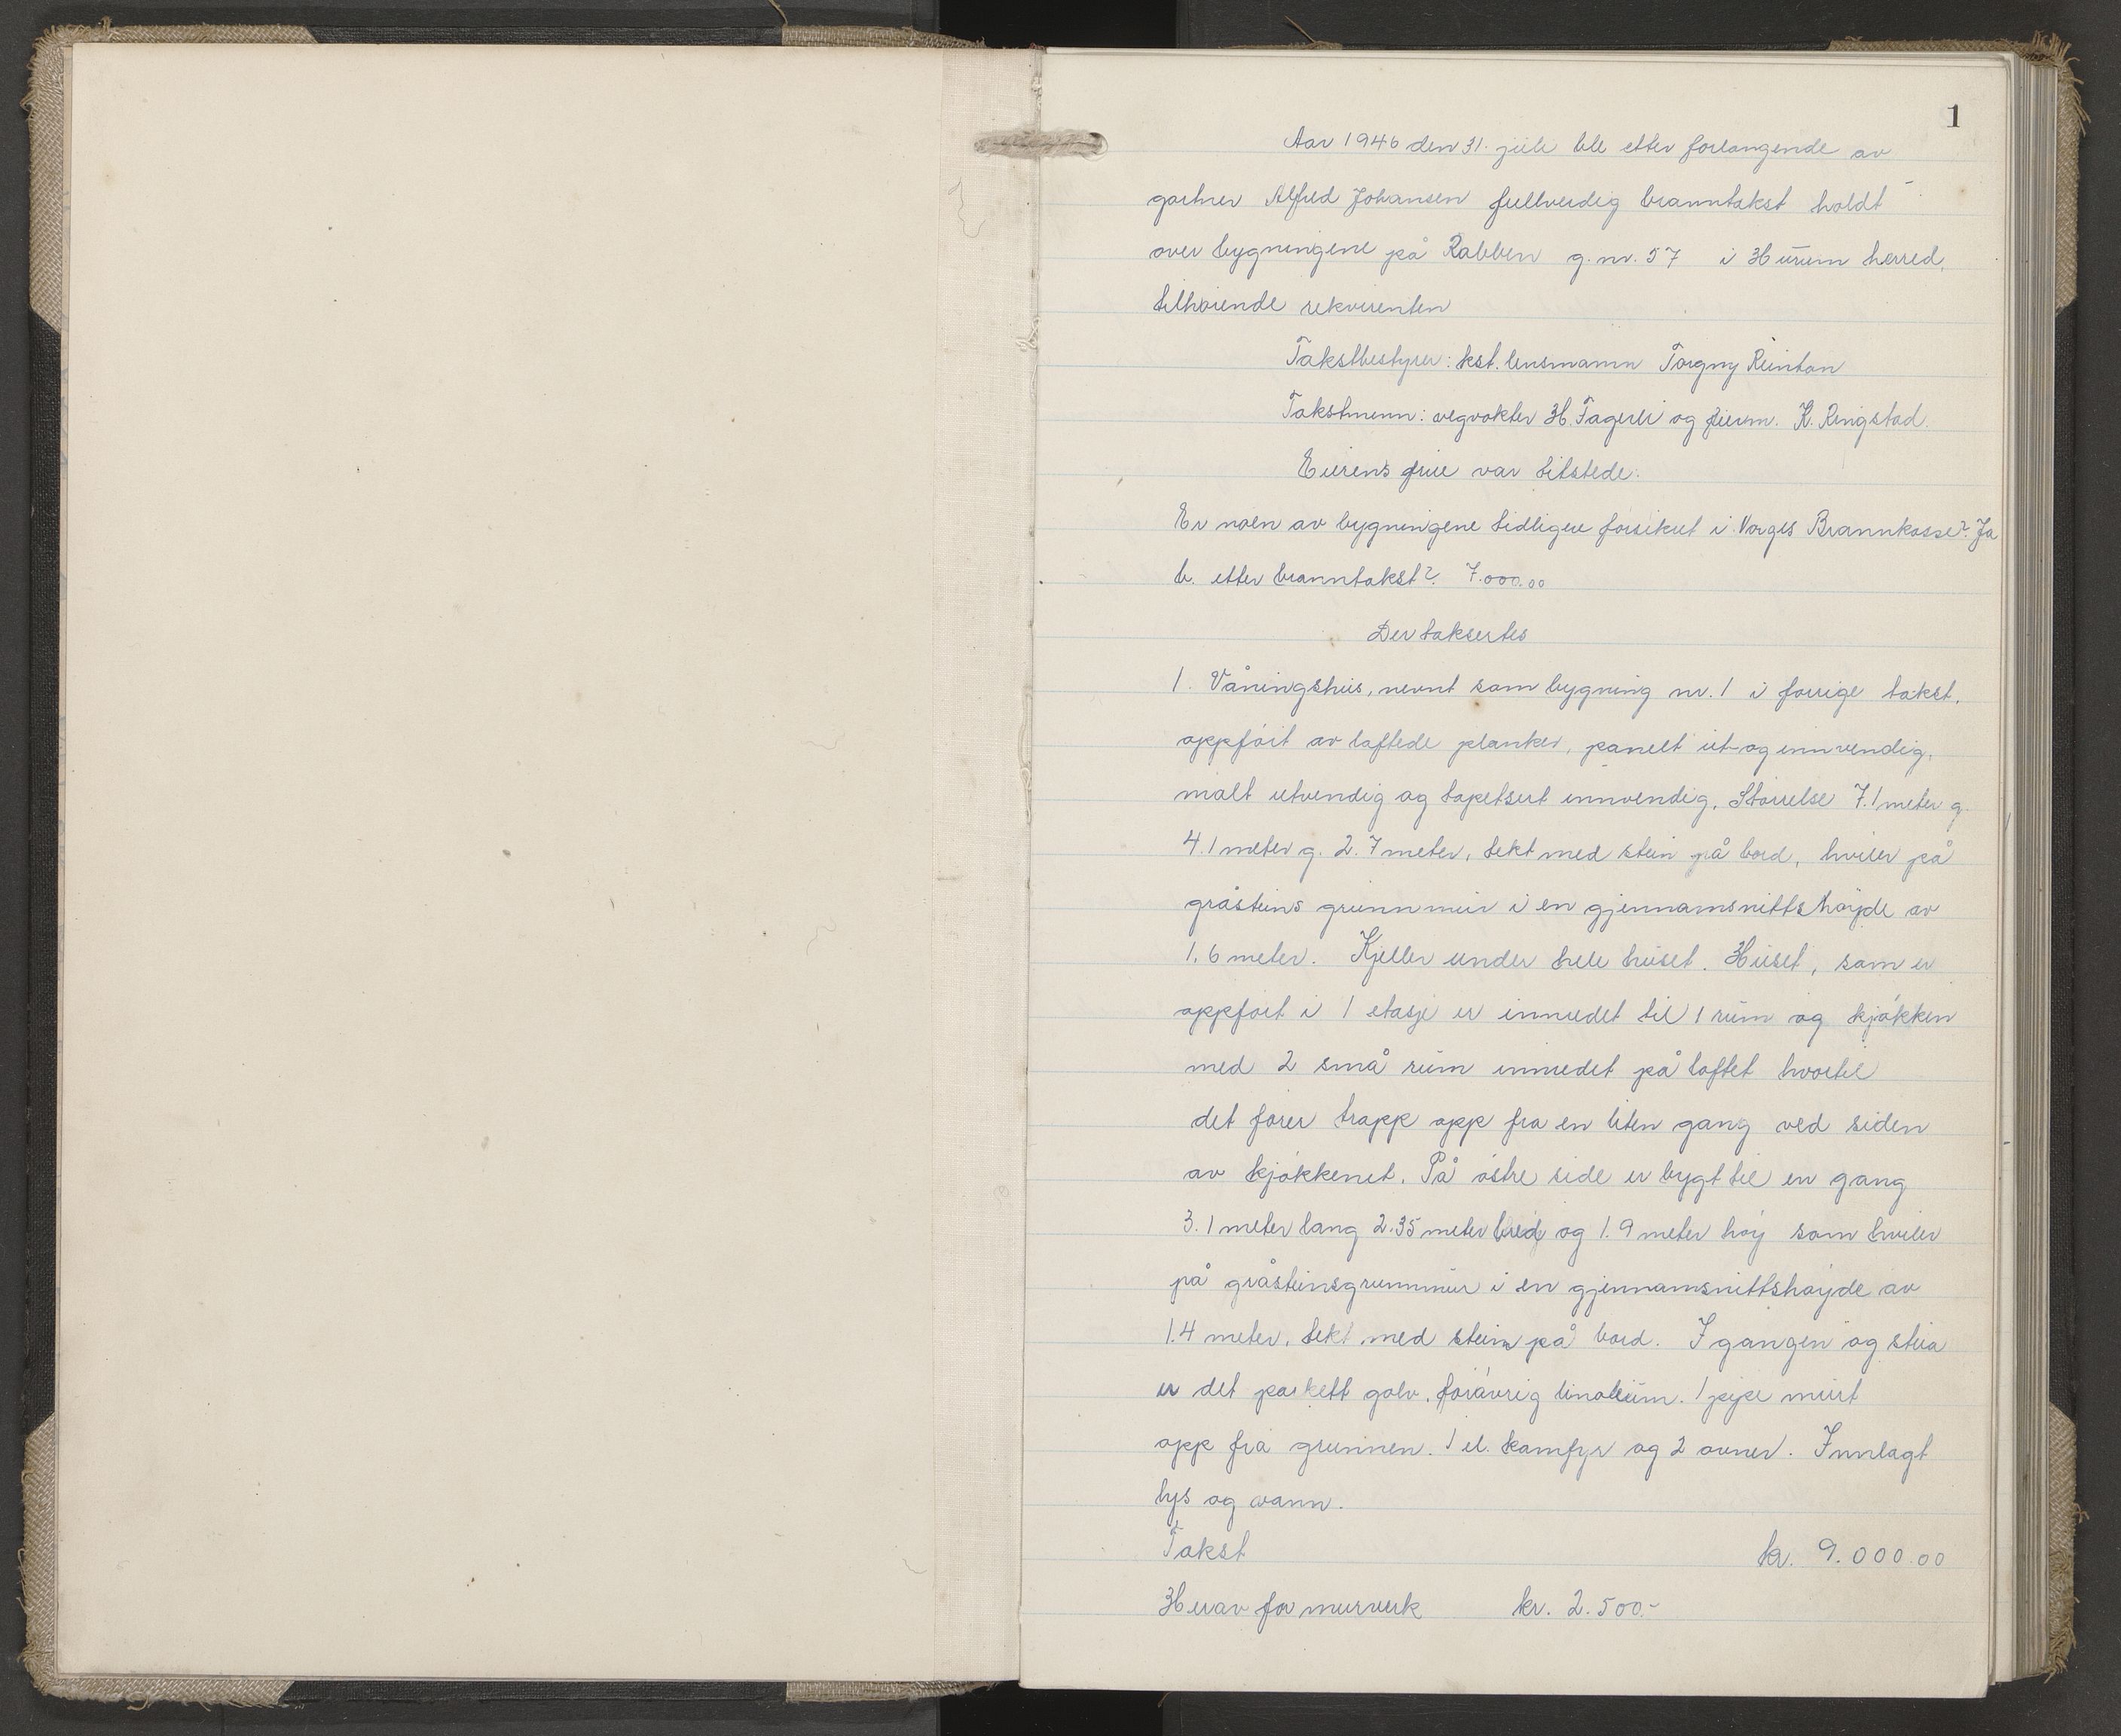 1
Aar 1946 den 31. juli ble etter forlangende av
gartner Alfred Johansen fullverdig branntakst holdt
over bygningene på Rabben g.nr. 57 i Hurum herred,
tilhørende rekvirenten
Takstbestyrer: kst. lensmann Torgny Reinton
Takstmenn: vegvokter H. Fagerli og feierm. K. Ringstad.
Eierens frue var tilstede.
Er noen av bygningene tidligere forsikret i Norges Brannkasse? Ja
b. etter branntakst? 7.000.00
Der taksertes
1. Våningshus, nevnt som bygning nr. 1 i forrige takst,
oppført av laftede planker, panelt ut- og innvendig,
malt utvendig og tapetsert innvendig. Størrelse 7.1 meter g.
4.1 meter g. 2.7 meter, tekt med stein på bord, hviler på
gråsteins grunnmur i en gjennomsnittshøyde av
1.6 meter. Kjeller under hele huset. Huset, som er
oppført i 1 etasje er innredet til 1 rum og kjøkken
med 2 små rum innredet på loftet hvortil
det fører trapp opp fra en liten gang ved siden
av kjøkkenet. På østre side er bygt til en gang
3.1 meter lang 2.35 meter bred og 1.9 meter høy som hviler
på gråsteinsgrunnmur i en gjennomsnittshøyde av
1.4 meter, tekt med stein på bord. I gangen og stua
er det parkett golv, forøvrig linoleum. 1 pipe murt
opp fra grunnen. 1 el. komfyr og 2 ovner. Innlagt
lys og vann.
Takst kr. 9.000.00
Herav for murverk kr. 2.500.-